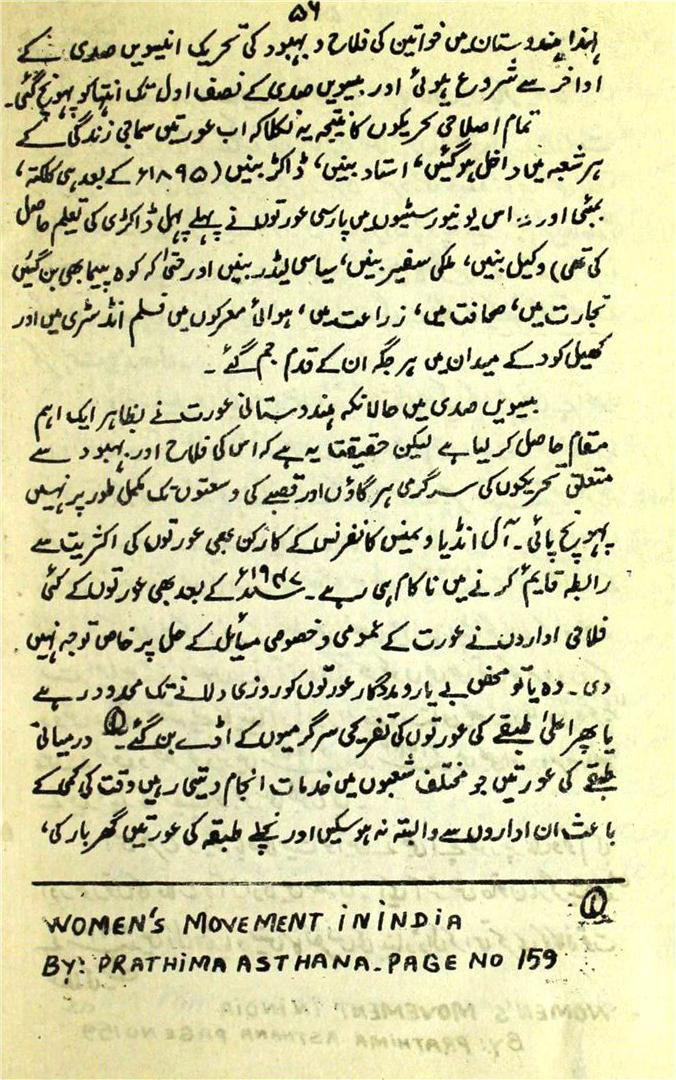 ۵۶
لہٰذا ہندوستان میں خواتین کی فلاح و بہبود کی تحریک انیسویں صدی کے
اواخر سے شروع ہوئی اور بیسویں صدی کے نصف اول تک انتہا کو پہونچ گئی۔
تمام اصلاحی تحریکوں کا نتیجہ یہ نکلا کہ اب عورتیں سماجی زندگی کے
ہر شعبہ میں داخل ہو گئیں، استاد بنیں، ڈاکڑ بنیں (۱۸۹۵ء کے بعد ہی کلکتہ،
بمبئی اور مدراس یونیورسٹیوں میں پارسی عورتوں نے پہلے پہل ڈاکڑی کی تعلیم حاصل
کی تھی) وکیل بنیں، ملکی سفیر بنیں، سیاسی لیڈر بنیں اور حتیٰ کہ کوہ پیما بھی بن گئیں
تجارت میں، صحافت میں، زراعت میں، ہوائی معرکوں میں فلم انڈسٹری میں اور
کھیل کود کے میدان میں ہر جگہ ان کے قدم جم گئے ۔
بیسویں صدی میں حالانکہ ہندوستانی عورت نے بظاہر ایک اہم
مقام حاصل کر لیا ہے لیکن حقیقتاً یہ ہے کہ اس کی فلاح اور بہبود سے
متعلق تحریکوں کی سرگرمی ہر گاؤں اور قصبے کی وسعتوں تک مکمل طور پر نہیں
پہونچ پائی ۔ آل انڈیا ویمنس کانفرنس کے کارکن بھی عورتوں کی اکثریت سے
رابطہ قایم کرنے میں ناکام ہی رہے ۔ ۱۹۴۷ء کے بعد بھی عورتوں کے کئی
فلاحی اداروں نے عورت کے عمومی و خصوصی مسائل کے حل پر خاص توجہ نہیں
دی ۔ وہ یا تو محض بے یار و مددگار عورتوں کو روزی دلانے تک محدود رہے
یا پھر اعلیٰ طبقے کی عورتوں کی تفریحی سرگرمیوں کے اڈے بن گئے ۔ ① درمیانی
طبقے کی عورتیں جو مختلف شعبوں میں خدمات انجام دیتی رہیں وقت کی کمی کے
باعث ان اداروں سے وابستہ نہ ہو سکیں اور نچلے طبقہ کی عورتیں گھر بار کی،
①
WOMEN'S MOVEMENT IN INDIA
BY: PRATHIMA ASTHANA. PAGE NO 159